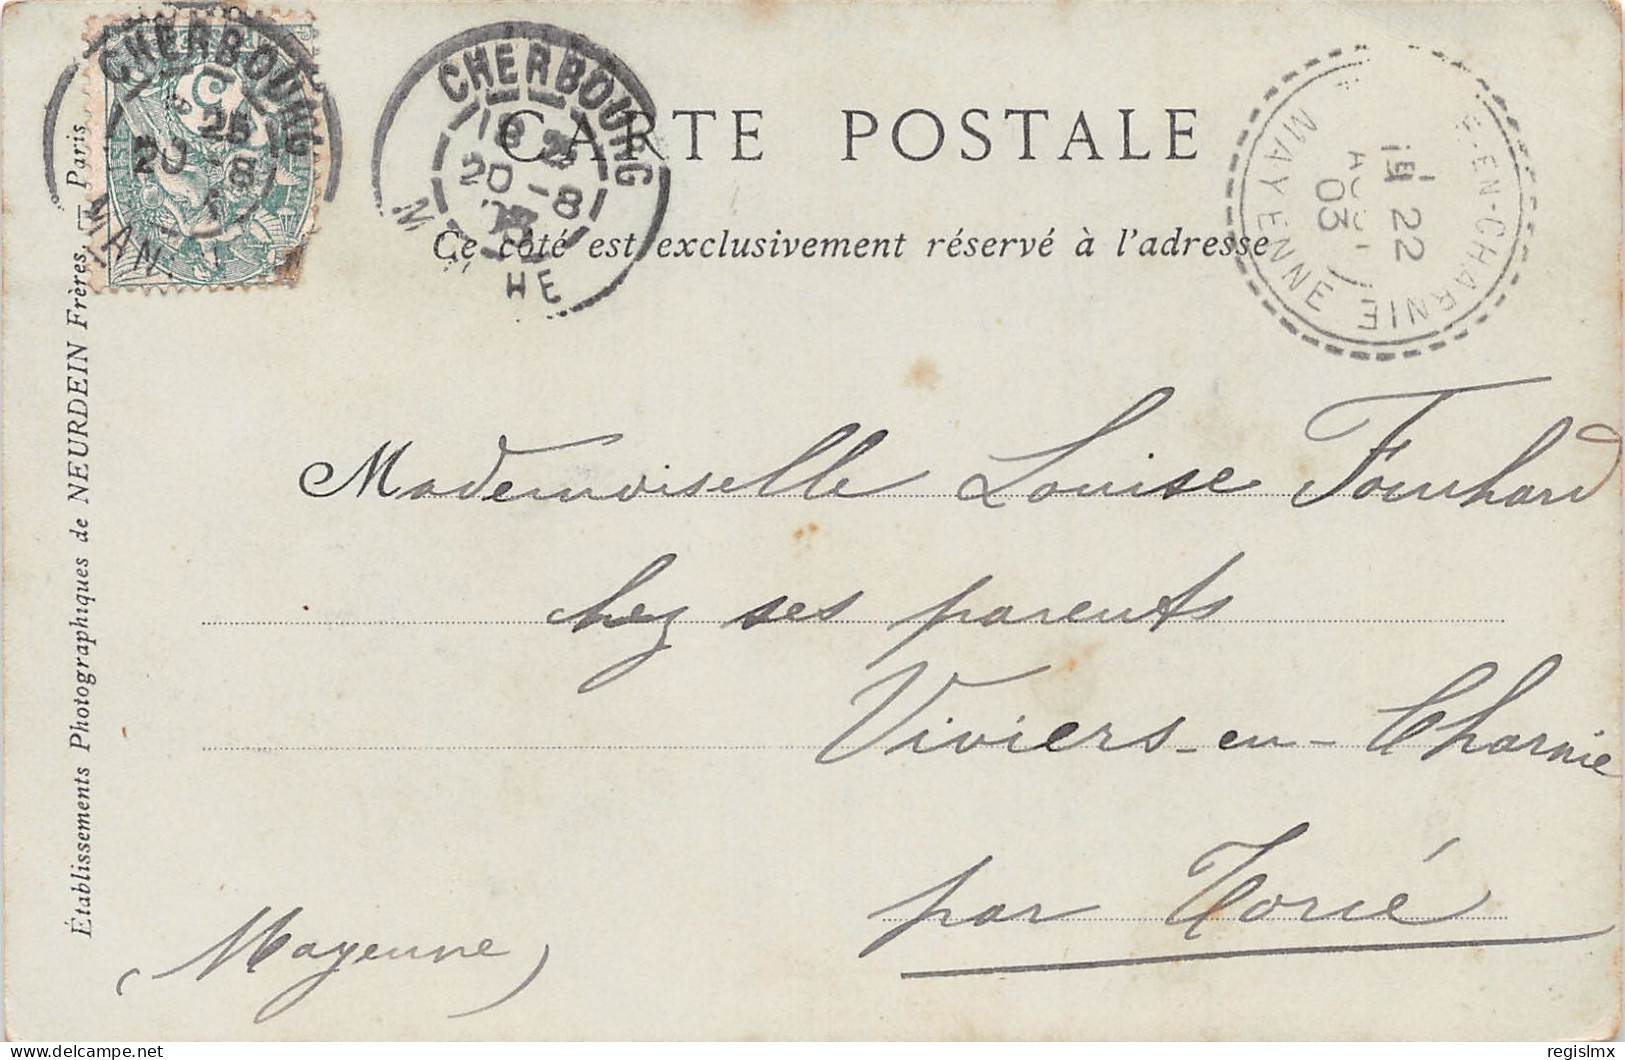 CHERBOURG
25
20 -8
MAN
CHERBOURG
18 25
20 -8
03
M HE
CARTE POSTALE
Ce côté est exclusivement réservé à l'adresse
E-EN-CHARNIE
22
AOUT
03
MAYENNE
Établissements Photographiques de NEURDEIN Frères, — Paris
Mademoiselle Louise Fouchard
chez ses parents
Viviers-en-Charnie
par Torcé
(Mayenne)
regislmx